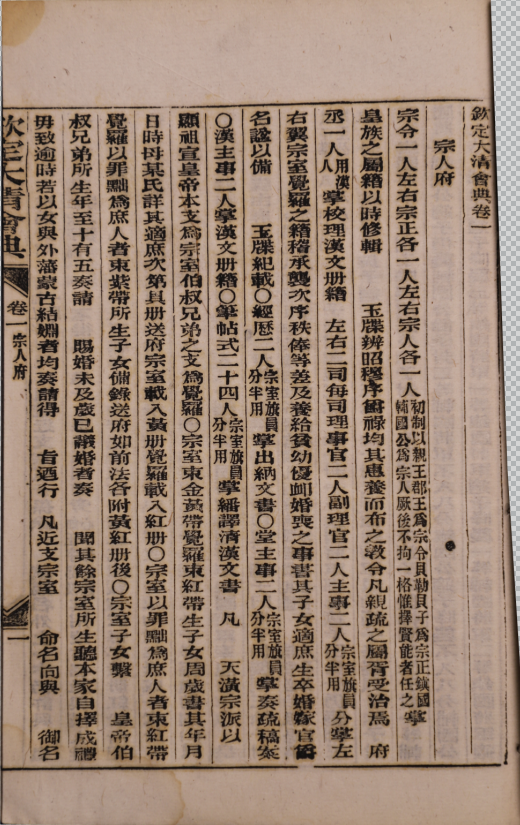 欽定大清會典卷一
宗人府
宗令一人左右宗正各一人左右宗人各一人初制以親王郡王為宗令貝勒貝子為宗正鎮國輔國公為宗人厥後不拘一格惟擇賢能者任之掌
皇族之屬籍以時修輯 玉牒辨昭穆序爵祿均其惠養而布之教令凡親疏之屬胥受治焉 府
丞一人用漢人掌校理漢文册籍 左右二司每司理事官二人副理官二人主事二人宗室旗員分半用分掌左
右翼宗室覺羅之籍稽承襲次序秩俸等差及養給貧幼優卹婚喪之事書其子女適庶生卒婚嫁官爵
名諡以備 玉牒紀載〇經歷二人宗室旗員分半用掌出納文書〇堂主事二人宗室旗員分半用掌奏疏稿案
〇漢主事二人掌漢文册籍〇筆帖式二十四人宗室旗員分半用掌繙譯清漢文書 凡 天潢宗派以
顯祖宣皇帝本支為宗室伯叔兄弟之支為覺羅〇宗室束金黃帶覺羅束紅帶生子女周歲書其年月
日時母某氏詳其適庶次第具册送府宗室載入黃册覺羅載入紅册〇宗室以罪黜為庶人者束紅帶
覺羅以罪黜為庶人者束紫帶所生子女備錄送府如前法各附黃紅册後〇宗室子女繫 皇帝伯
叔兄弟所生年至十有五奏請 賜婚未及歲已議婚者奏 聞其餘宗室所生聽本家自擇成禮
毋致逾時若以女與外藩蒙古結姻者均奏請得 旨迺行 凡近支宗室 命名向與 御名
欽定大清會典
卷一 宗人府
一